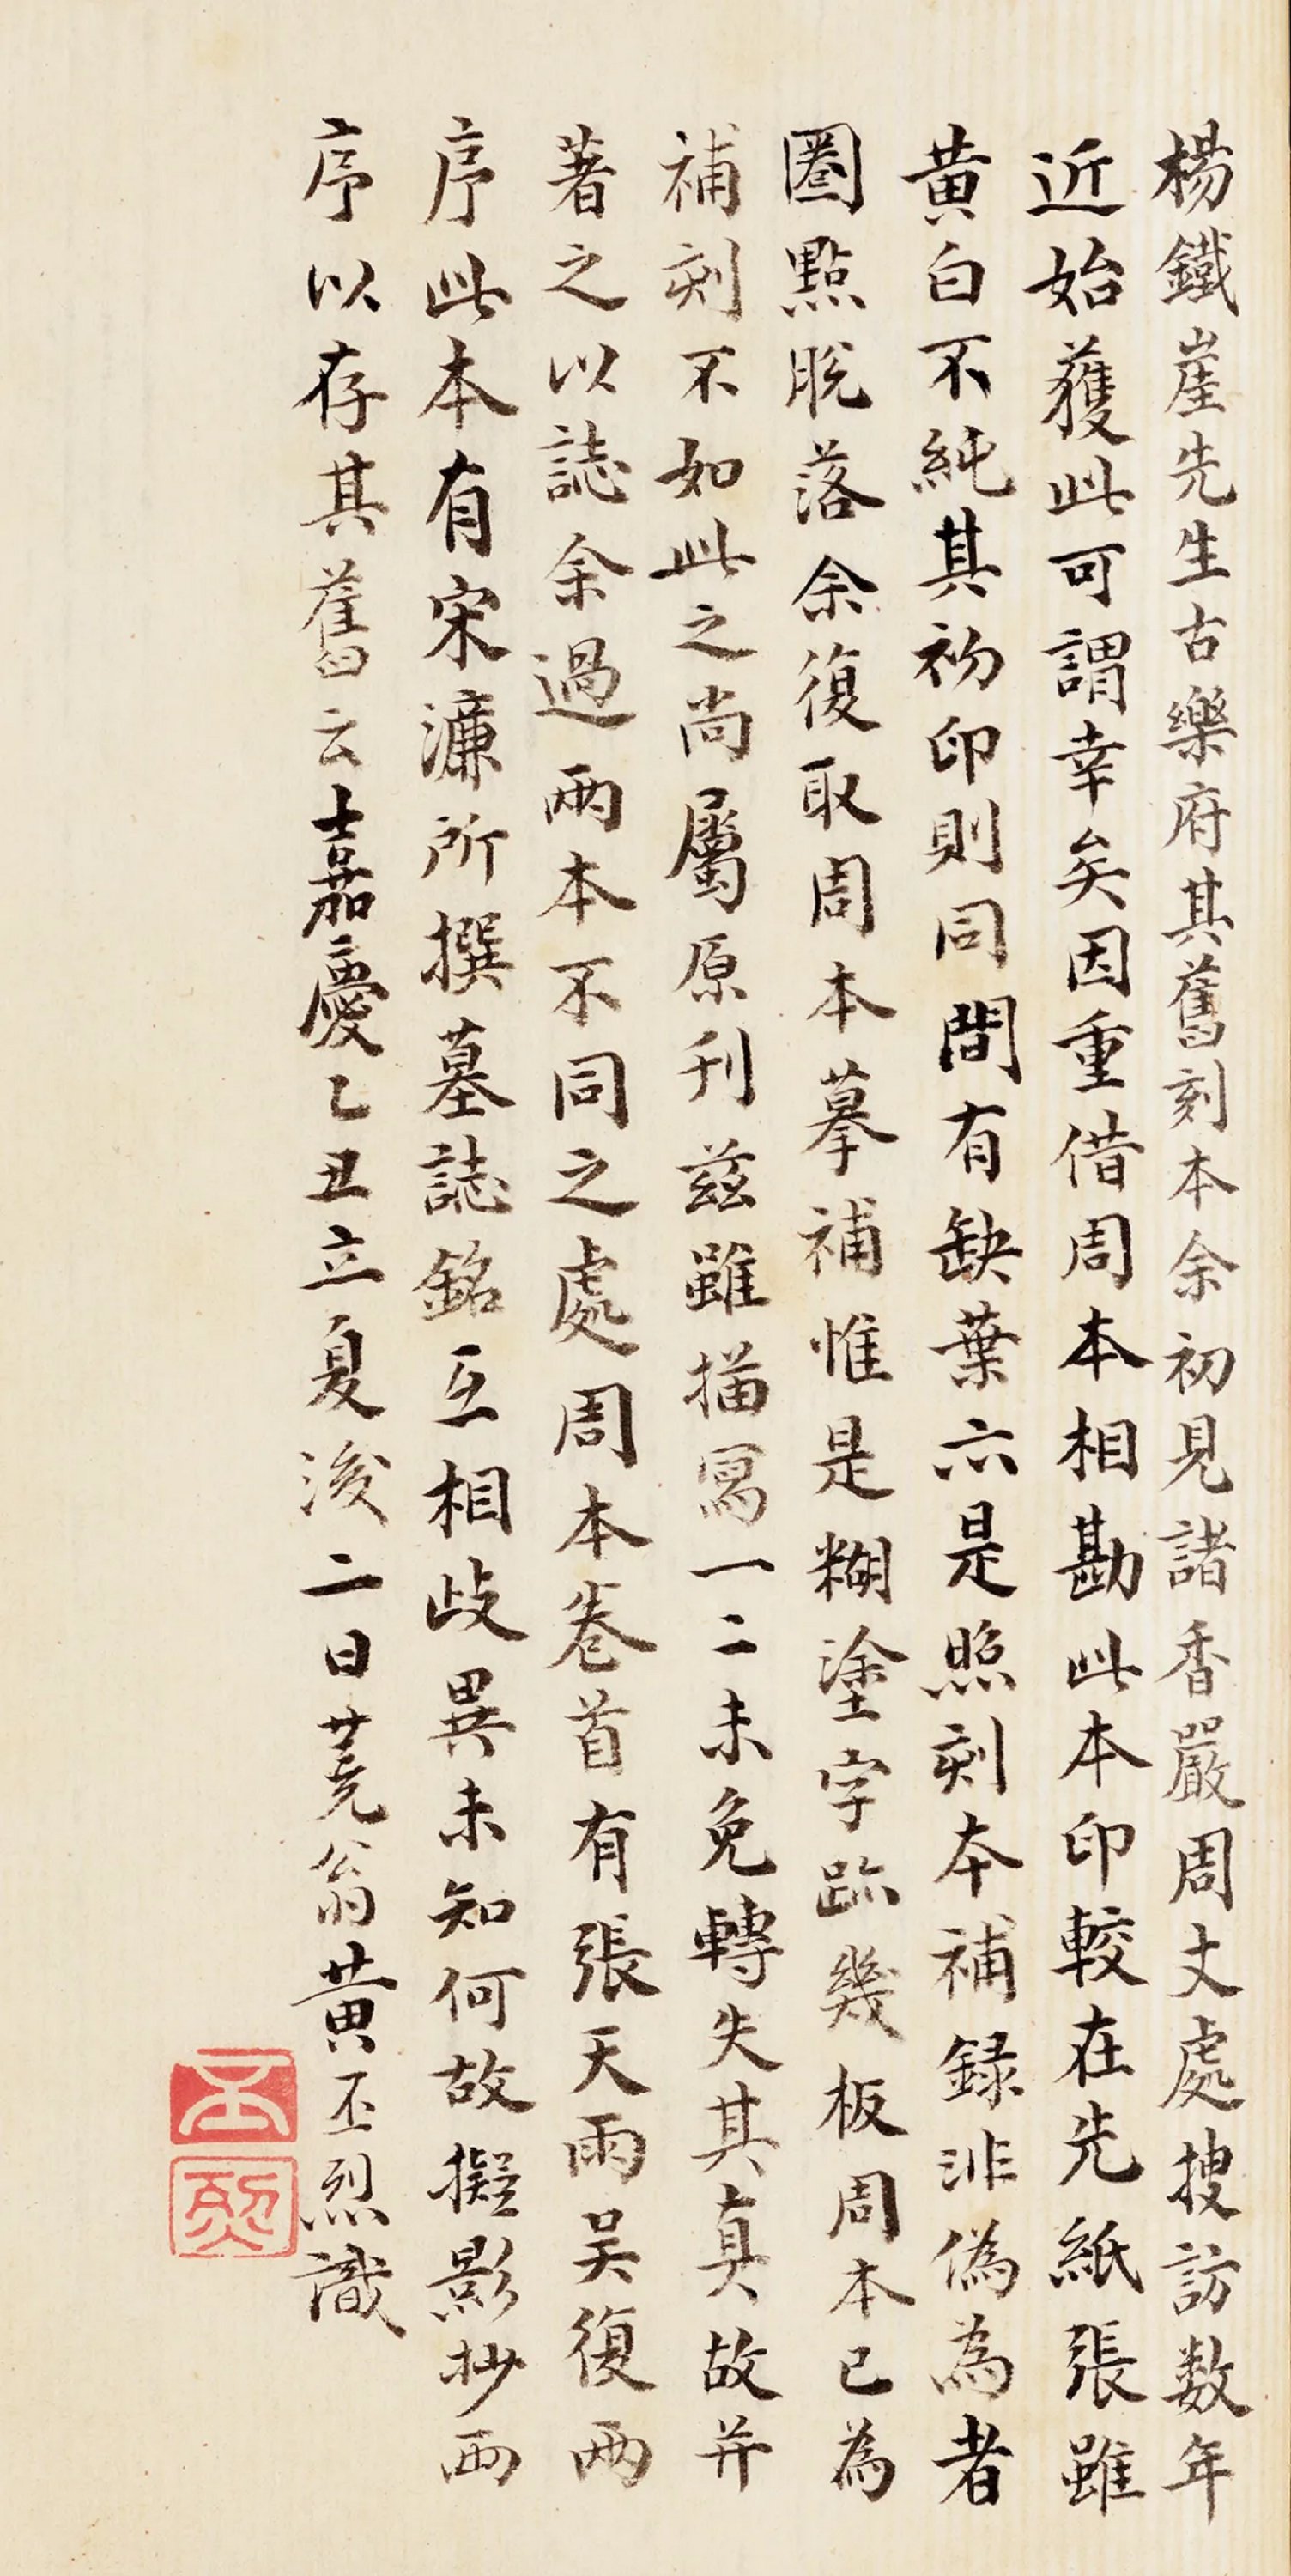 楊鐵崖先生古樂府其舊刻本余初見諸香嚴周丈處搜訪数年
近始獲此可謂幸矣因重借周本相勘此本印較在先紙張雖
黄白不純其初印則同間有缺葉六是照刻本補録非偽為者
圈點脫落余復取周本摹補惟是糊塗字跡幾板周本已為
補刻不如此之尚屬原刊兹雖描寫一二未免轉失其真故并
著之以誌余過兩本不同之處周本卷首有張天雨吴復兩
序此本有宋濂所撰墓誌銘互相歧異未知何故擬影抄兩
序以存其舊云嘉慶乙丑立夏後二日蕘翁黄丕烈識
丕
烈